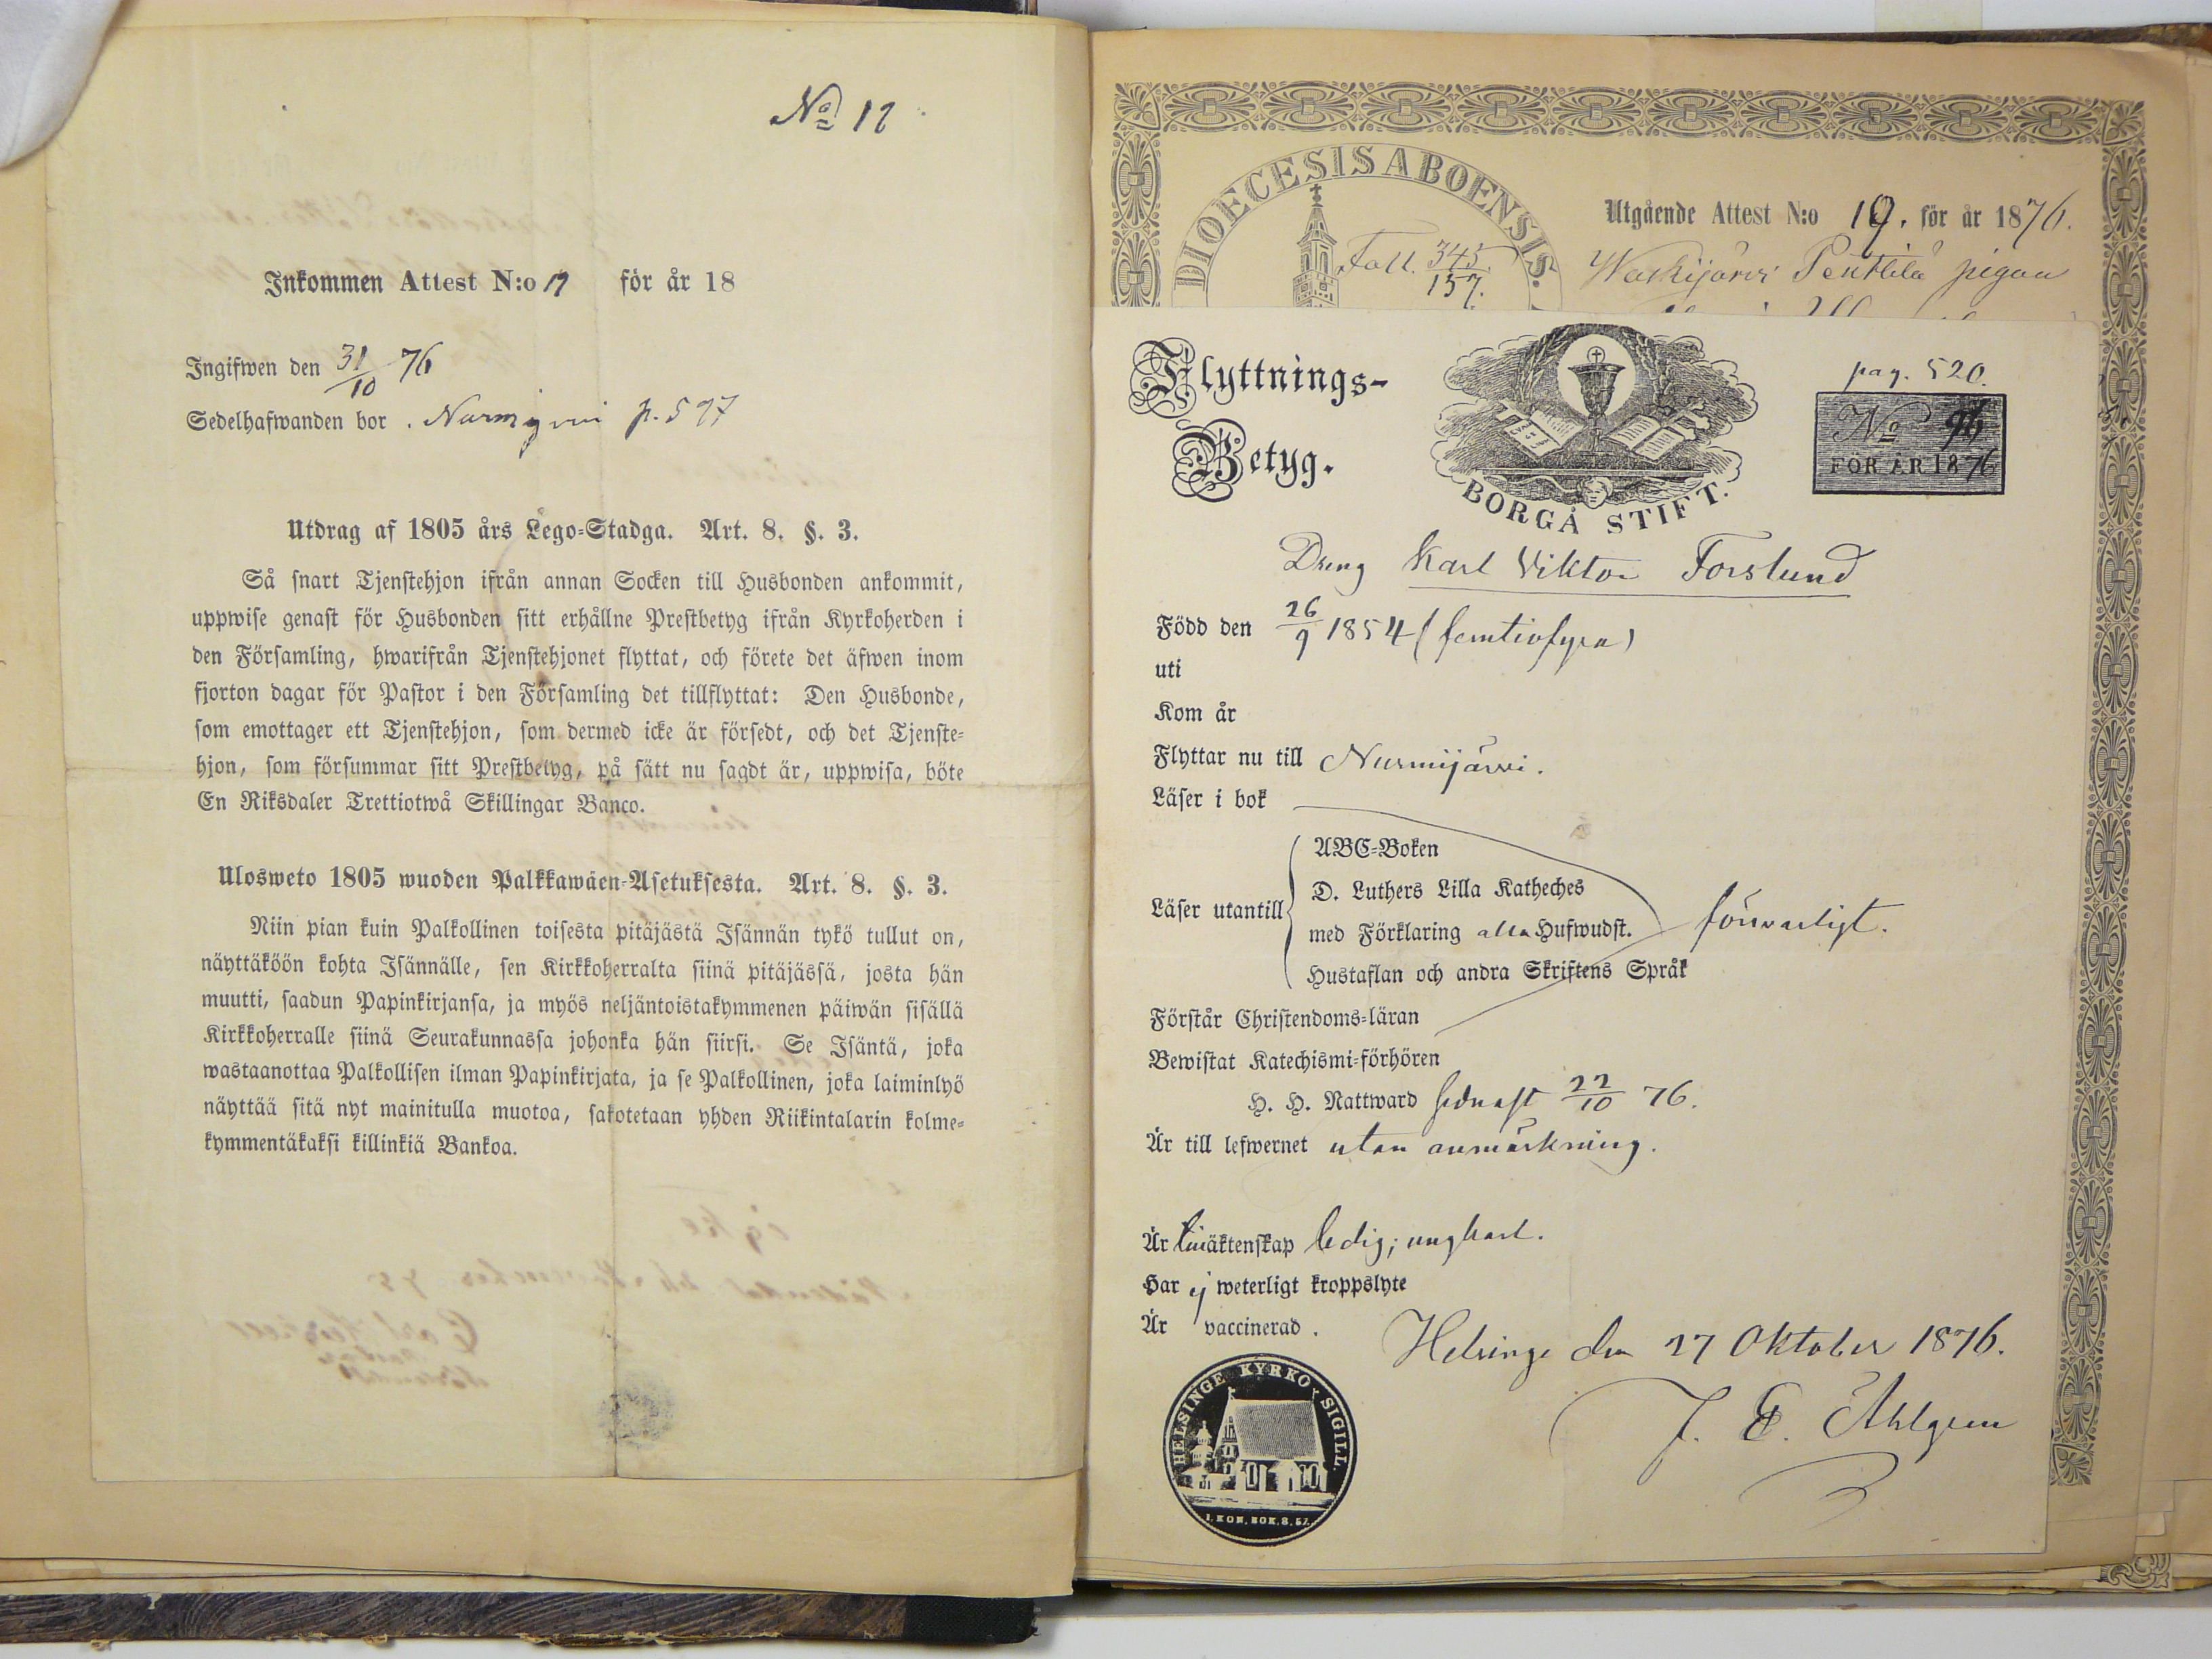 No 12
Inkommen Attest N:o 19 för år 18
Ingifwen den 31/10 76
Sedelhafwanden bor . Nurmijärvi p. 597
Utdrag af 1805 års Lego-Stadga. Art. 8. §. 3.
Så snart Tjenstehjon ifrån annan Socken till Husbonden ankommit,
uppwise genast för Husbonden sitt erhållne Prestbetyg ifrån Kyrkoherden i
den Församling, hwarifrån Tjenstehjonet flyttat, och förete det äfwen inom
fjorton dagar för Pastor i den Församling det tillflyttat: Den Husbonde,
som emottager ett Tjenstehjon, som dermed icke är försedt, och det Tjenste-
hjon, som försummar sitt Prestbetyg, på sätt nu sagdt är, uppwisa, böte
En Riksdaler Trettiotwå Skillingar Banco.
Ulosweto 1805 wuoden Palkkawäen-Asetuksesta. Art. 8. §. 3.
Niin pian kuin Palkollinen toisesta pitäjästä Isännän tykö tullut on,
näyttäköön kohta Isännälle, sen Kirkkoherralta siinä pitäjässä, josta hän
muutti, saadun Papinkirjansa, ja myös neljäntoistakymmenen päiwän sisällä
Kirkkoherralle siinä Seurakunnassa johonka hän siirsi. Se Isäntä, joka
wastaanottaa Palkollisen ilman Papinkirjata, ja se Palkollinen, joka laiminlyö
näyttää sitä nyt mainitulla muotoa, sakotetaan yhden Riikintalarin kolme-
kymmentäkaksi killinkiä Bankoa.
DIOECESIS ABOENSIS.
Utgående Attest N:o 19. för år 1876.
Foll. 345/157.
Pentilä pigan
Flyttnings-
Betyg.
BORGÅ STIFT.
pag. 520.
No 96
FÖR ÅR 1876
Dreng Karl Viktor Forslund
Född den 26/9 1854 (femtiofyra)
uti
Kom år
Flyttar nu till Nurmijärvi.
Läser i bok
ABC-Boken
D. Luthers Lilla Katheches
Läser utantill
med Förklaring alla Hufwudst. försvarligt.
Hustaflan och andra Skriftens Språk
Förstår Christendoms-läran
Bewistat Katechismi-förhören
H. H. Nattward sednast 22/10 76.
Är till lefwernet utan anmärkning.
Är till äktenskap ledig; ungkarl.
Har ej weterligt kroppslyte
Är vaccinerad.
Helsinge den 27 Oktober 1876.
J. E. Ahlgren
HELSINGE KYRKO SIGILL.
I. KON. BOK. 8. 57.